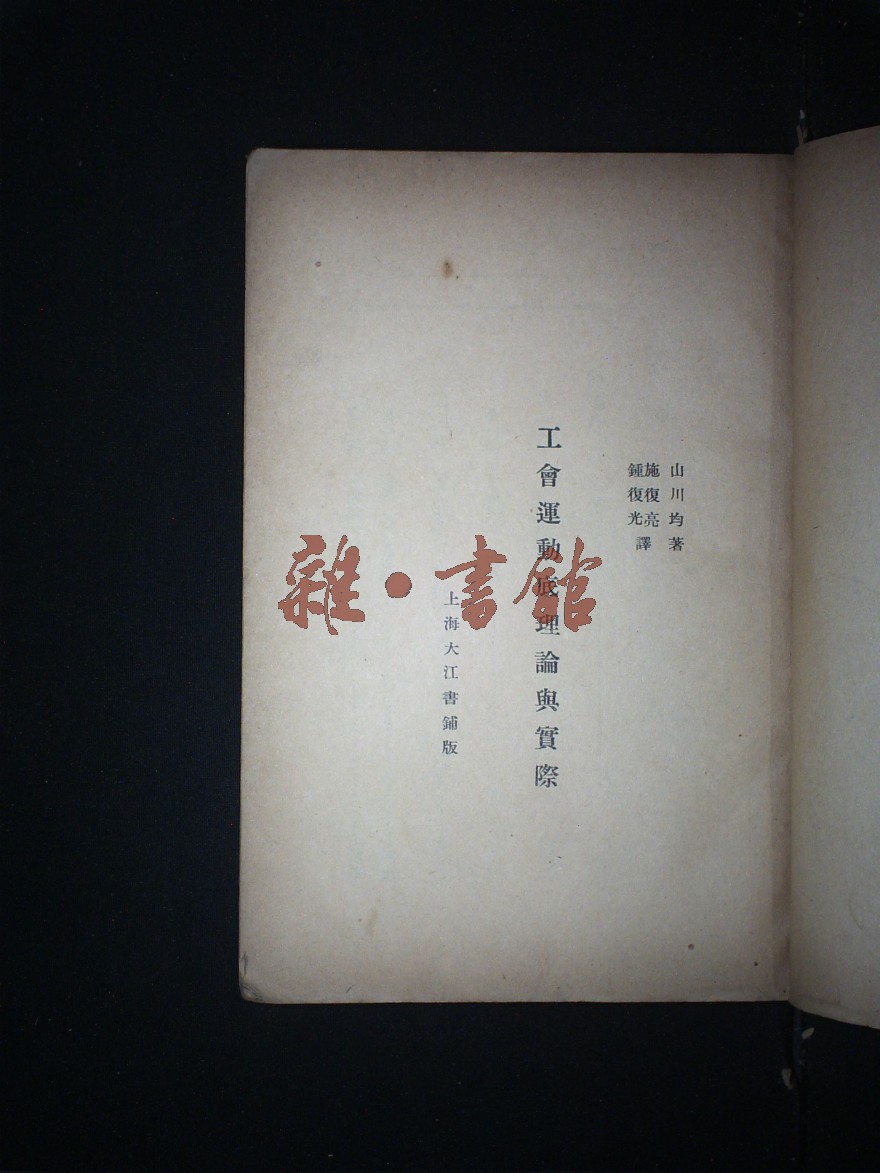 山川均著
施復亮
鍾復光
譯
工會運動底理論與實際
上海大江書鋪版
雜·書館